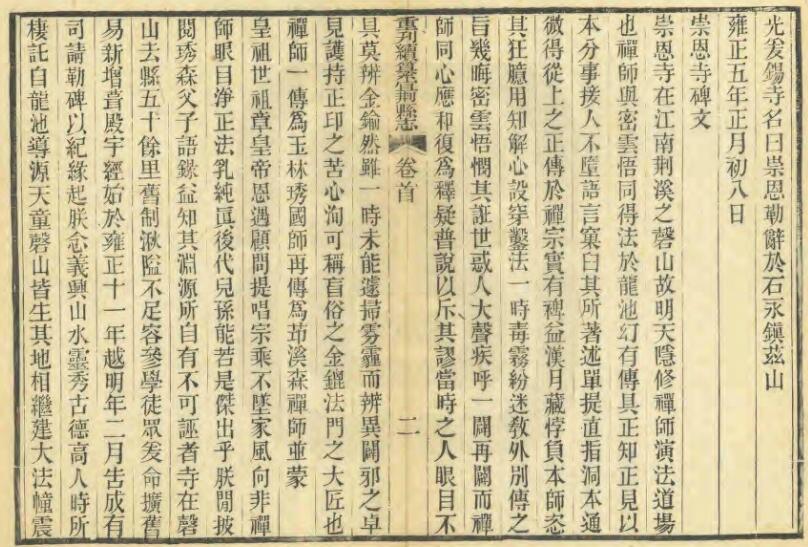 光爰錫寺名曰崇恩勒辭於石永鎮茲山
雍正五年正月初八日
崇恩寺碑文
崇恩寺在江南荆溪之磬山故明天隱修禪師演法道場
也禪師與密雲悟同得法於龍池幻有傳具正知正見以
本分事接人不墮語言窠臼其所著述單提直指洞本通
微得從上之正傳於禪宗實有裨益漢月藏悖負本師恣
其狂臆用知解心設穿鑿法一時毒霧紛迷教外別傳之
旨幾晦密雲悟憫其誑世惑人大聲疾呼一闢再闢而禪
師同心應和復爲釋疑普說以斥其謬當時之人眼目不
重刊續纂宜荆縣志
卷首
二
具莫辨金鍮然雖一時未能遽掃雾霾而辨異闢邪之卓
見護持正印之苦心洵可稱盲俗之金鎞法門之大匠也
禪師一傳爲玉林琇國師再傳爲茆溪森禪師並蒙
皇祖世祖章皇帝恩遇顧問提唱宗乘不墜家風向非禪
師眼目淨正法乳純眞後代兒孫能若是傑出乎朕閒披
閱琇森父子語錄益知其淵源所自有不可誣者寺在磬
山去縣五十餘里舊制湫隘不足容參學徒眾爰命擴舊
易新增葺殿宇經始於雍正十一年越明年二月告成有
司請勒碑以紀緣起朕念義興山水靈秀古德高人時所
棲託自龍池導源天童磬山皆生其地相繼建大法幢震